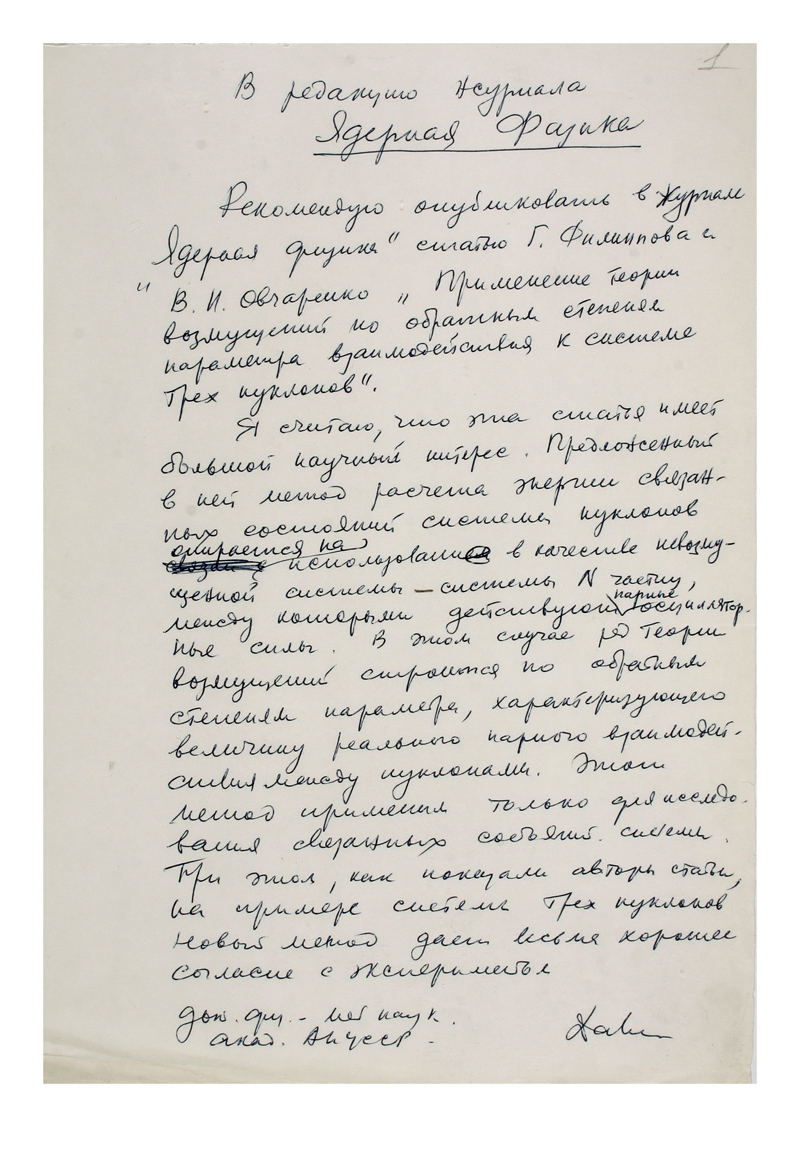 1
В редакцию журнала
Ядерная Физика
Рекомендую опубликовать в журнале
"Ядерная физика" статью Г. Филиппова и
В. И. Овчаренко „Применение теории
возмущений по обратным степеням
параметра взаимодействия к системе
трех нуклонов".
Я считаю, что эта статья имеет
большой научный интерес. Предложенный
в ней метод расчета энергии связан-
ных состояний системы нуклонов
опирается на
использование в качестве невозму-
щенной системы – системы N частиц,
парные
между которыми действуют осциллятор-
ные силы. В этом случае ряд теории
возмущений строится по обратным
степеням параметра, характеризующего
величину реального парного взаимодей-
ствия между нуклонами. Этот
метод применим только для исследо-
вания связанных состояний системы.
При этом, как показали авторы статьи,
на примере системы трех нуклонов
новый метод дает весьма хорошее
согласие с экспериментом
док. физ.-мат наук.
акад. АН УССР.